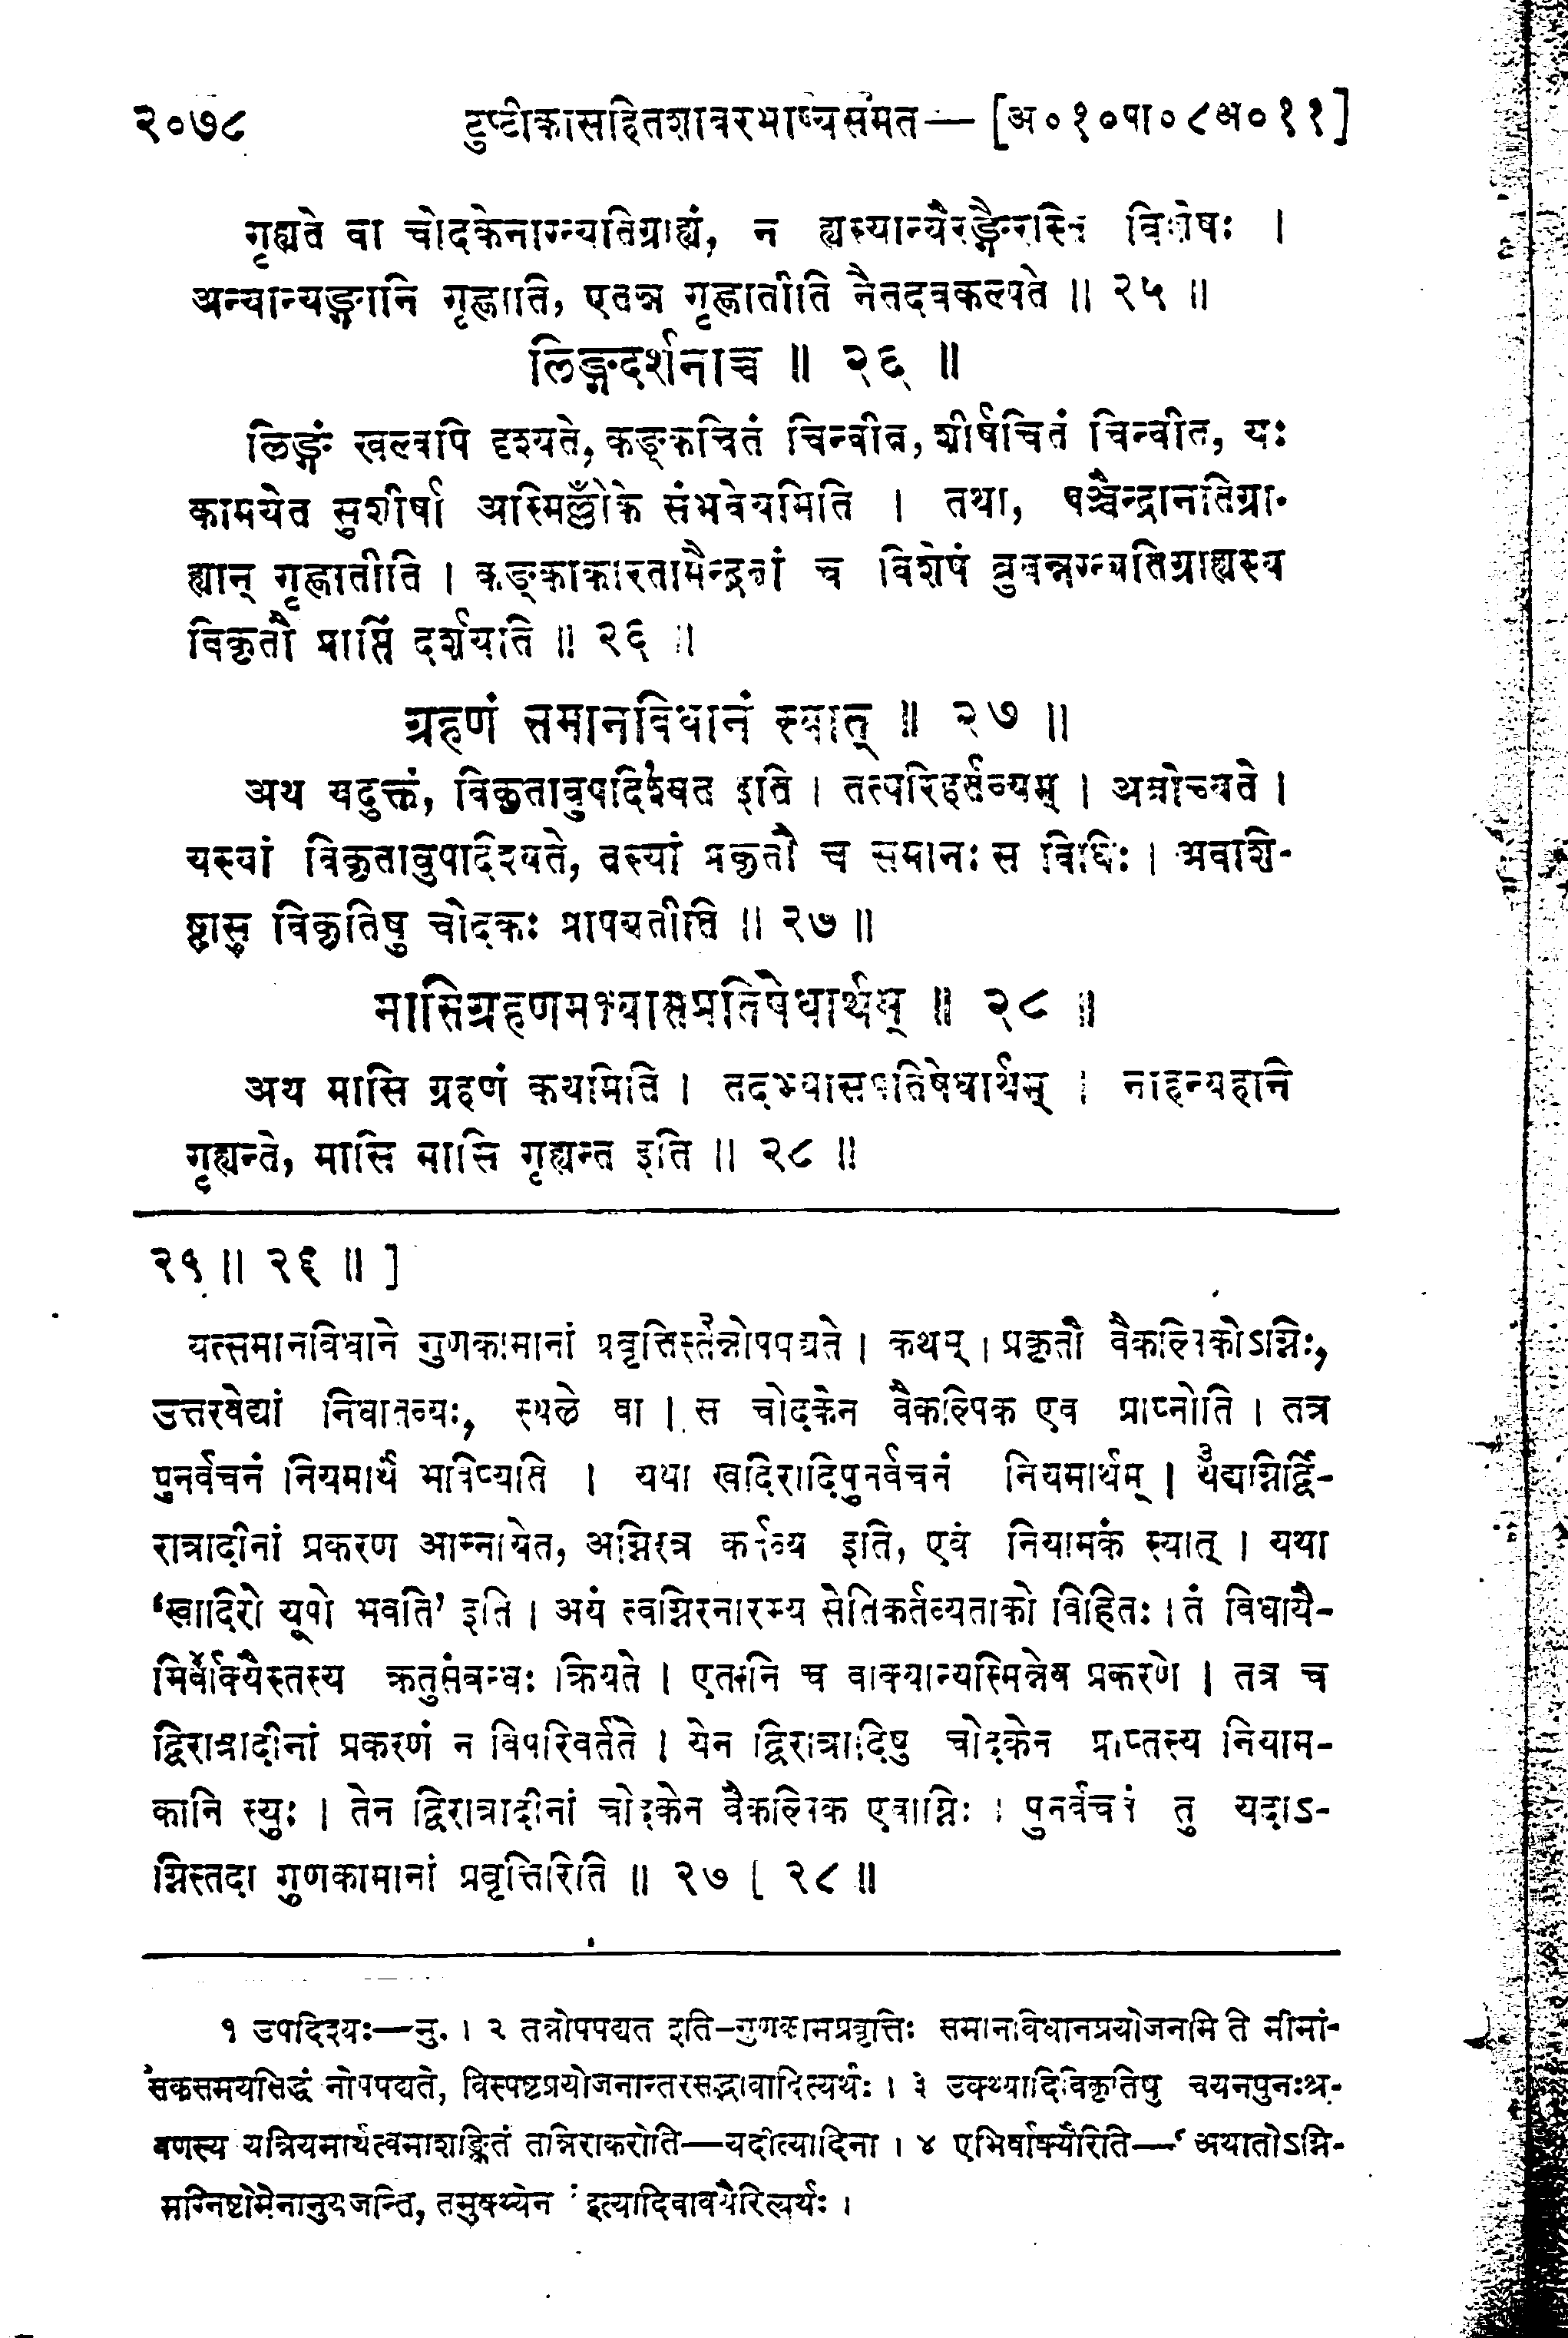 २०७८ टुप्टीकासहितशाबरभाष्यसमेत— [अ०१०पा०८अ०११]
गृह्यते वा चोदकेनाग्न्यतिग्राह्यं, न ह्यस्यान्यैरङ्गैरस्ति विशेषः ।
अन्यान्यङ्गानि गृह्णाति, एतन्न गृह्णातीति नैतदवकल्पते ॥ २५ ॥
लिङ्गदर्शनाच्च ॥ २६ ॥
लिङ्गं खल्वपि दृश्यते, कङ्कचितं चिन्वीत, शीर्षचितं चिन्वीत, यः
कामयेत सुशीर्षा अस्मिल्लँोके संभवेयमिति । तथा, पञ्चैन्द्रानतिग्रा-
ह्यान् गृह्णातीति । कङ्काकारतामैन्द्रतां च विशेषं ब्रुवन्नग्न्यतिग्राह्यस्य
विकृतौ प्राप्तिं दर्शयति ॥ २६ ॥
ग्रहणं समानविधानं स्यात् ॥ २७ ॥
अथ यदुक्तं, विकृतावुपदिश्यत इति । तत्परिहर्तव्यम् । अत्रोच्यते ।
यस्यां विकृतावुपदिश्यते, तस्यां प्रकृतौ च समानः स विधिः । अवशि-
ष्टासु विकृतिषु चोदकः प्रापयतीति ॥ २७ ॥
मासिग्रहणमभ्यासप्रतिषेधार्थम् ॥ २८ ॥
अथ मासि ग्रहणं कथमिति । तदभ्यासप्रतिषेधार्थम् । नाहन्यहनि
गृह्यन्ते, मासि मासि गृह्यन्त इति ॥ २८ ॥
२५ ॥ २६ ॥ ]
यत्समानविधाने गुणकामानां प्रवृत्तिस्तन्नोपपद्यते२ । कथम् । प्रकृतौ वैकल्पिकोऽग्निः,
उत्तरवेद्यां निधातव्यः, स्थले वा । स चोदकेन वैकल्पिक एव प्राप्नोति । तत्र
पुनर्वचनं नियमार्थं भविष्यति । यथा खदिरादिपुनर्वचनं नियमार्थम् । यद्यग्निर्द्वि-३
रात्रादीनां प्रकरण आम्नायेत, अग्निरत्र कर्तव्य इति, एवं नियामकं स्यात् । यथा
‘खादिरो यूपो भवति’ इति । अयं त्वग्निरनारभ्य सेतिकर्तव्यताको विहितः । तं विधायै-
भिर्वाक्यैस्तस्य क्रतुसंबन्धः क्रियते । एतानि च वाक्यान्यस्मिन्नेव प्रकरणे । तत्र च
द्विरात्रादीनां प्रकरणं न विपरिवर्तते । येन द्विरात्रादिषु चोदकेन प्राप्तस्य नियाम-
कानि स्युः । तेन द्विरात्रादीनां चोदकेन वैकल्पिक एवाग्निः । पुनर्वचनं तु यदाऽ-
ग्निस्तदा गुणकामानां प्रवृत्तिरिति ॥ २७ ॥ २८ ॥
१ उपदिश्यः—मु. । २ तन्नोपपद्यत इति-गुणकामप्रवृत्तिः समानविधानप्रयोजनमिति मीमां-
सकसमयसिद्धं नोपपद्यते, विस्पष्टप्रयोजनान्तरसद्भावादित्यर्थः । ३ उक्थ्यादिविकृतिषु चयनपुनःश्र-
वणस्य यन्नियमार्थत्वमाशङ्कितं तन्निराकरोति—यदीत्यादिना । ४ एभिर्वाक्यैरिति—‘ अथातोऽग्नि-
मग्निष्टोमेनानुयजन्ति, तमुक्थ्येन ’ इत्यादिवाक्यैरित्यर्थः ।